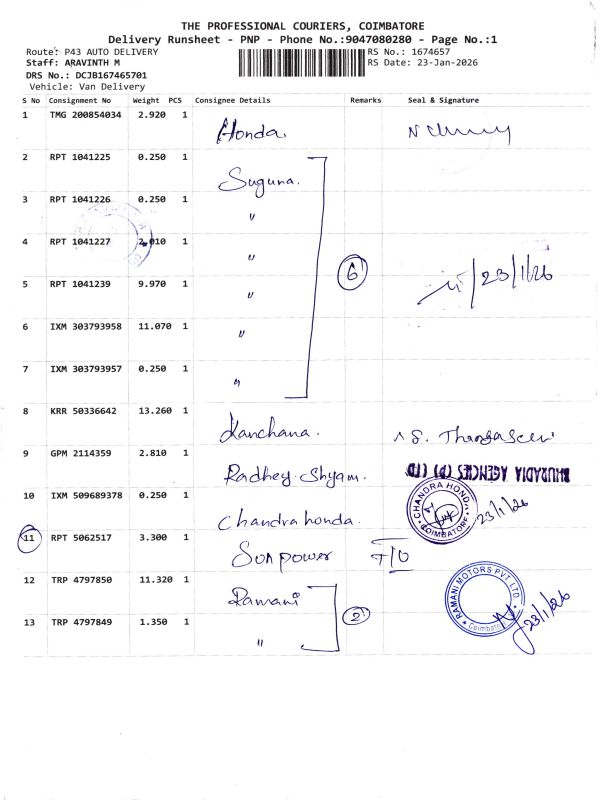 THE PROFESSIONAL COURIERS, COIMBATORE
Delivery Runsheet - PNP - Phone No.:9047080280 - Page No.:1
Route: P43 AUTO DELIVERY
RS No.: 1674657
Staff: ARAVINTH M
RS Date: 23-Jan-2026
DRS No.: DCJB167465701
Vehicle: Van Delivery
S No Consignment No Weight PCS Consignee Details Remarks Seal & Signature
1 TMG 200854034 2.920 1 Honda.
2 RPT 1041225 0.250 1 Suguna.
3 RPT 1041226 0.250 1 "
4 RPT 1041227 2.010 1 "
5 RPT 1041239 9.970 1 " 6 23/1/26
6 IXM 303793958 11.070 1 "
7 IXM 303793957 0.250 1 "
8 KRR 50336642 13.260 1 Kanchana.
9 GPM 2114359 2.810 1 Radhey Shyam. AGENCIES (P) LTD
10 IXM 509689378 0.250 1 Chandra honda. CHANDRA HONDA COIMBATORE 23/1/26
11 RPT 5062517 3.300 1 Sun power T/O
12 TRP 4797850 11.320 1 Ramani RAMANI MOTORS PVT LTD Coimbatore 23/1/26
13 TRP 4797849 1.350 1 " 2